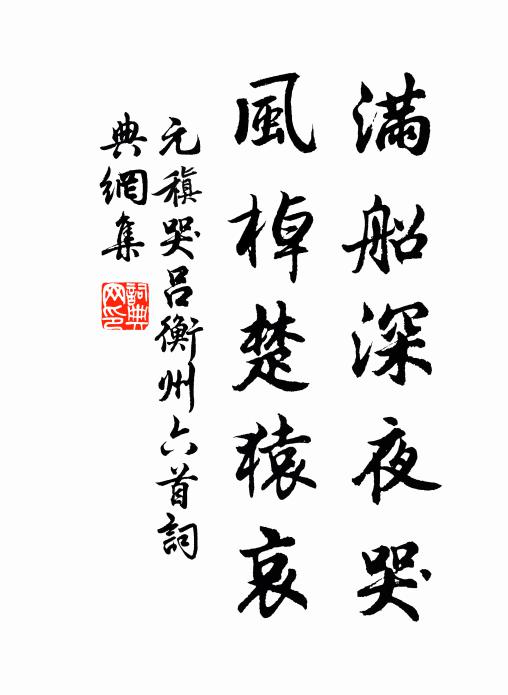 滿船深夜哭
風棹楚猿哀
元稹哭呂衡州六首詞
典網集
詞典
网印